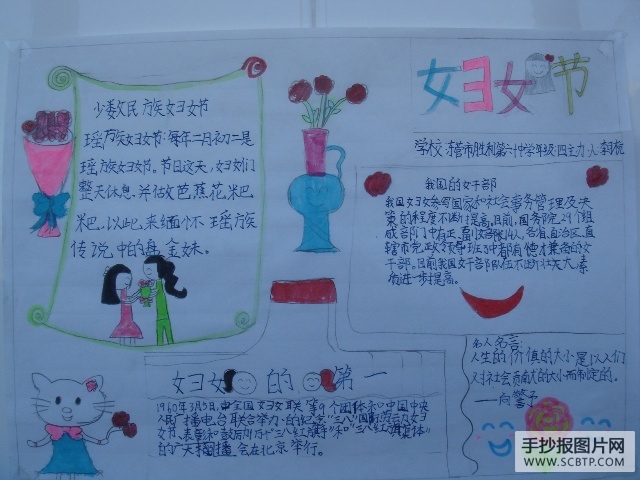 妇女节
少数民族妇女节
瑶族妇女节:每年二月初二是
瑶族妇女节。节日这天,妇女们
整天休息,并估攵芭蕉花粑
粑,以此来缅怀瑶族
传说中的盘金妹。
学校:市胜利第一中学年级:四主办人:
我国的女干部
我国妇女参与国家和社会事务管理及决
策的程度不断提高。目前,国务院29个组
成部门中有正、副女部长,各省、自治区、直
辖市党政领导班子中都有德才兼备的女
干部。目前我国女干部队伍不断壮大,素
质进一步提高。
妇女的第一
1960年3月5日,由全国妇女联等个团体和中国中央
人民广播电台联合举办的纪念“三八”国际劳动妇女
节、表彰和鼓励“三八红旗手”和“三八红旗集体”
的广播会在北京举行。
名人名言:
人生的价值的大小是以人们
对社会贡献的大小而制定的。
——向警予
手抄报图片网
WWW.SCBTP.COM